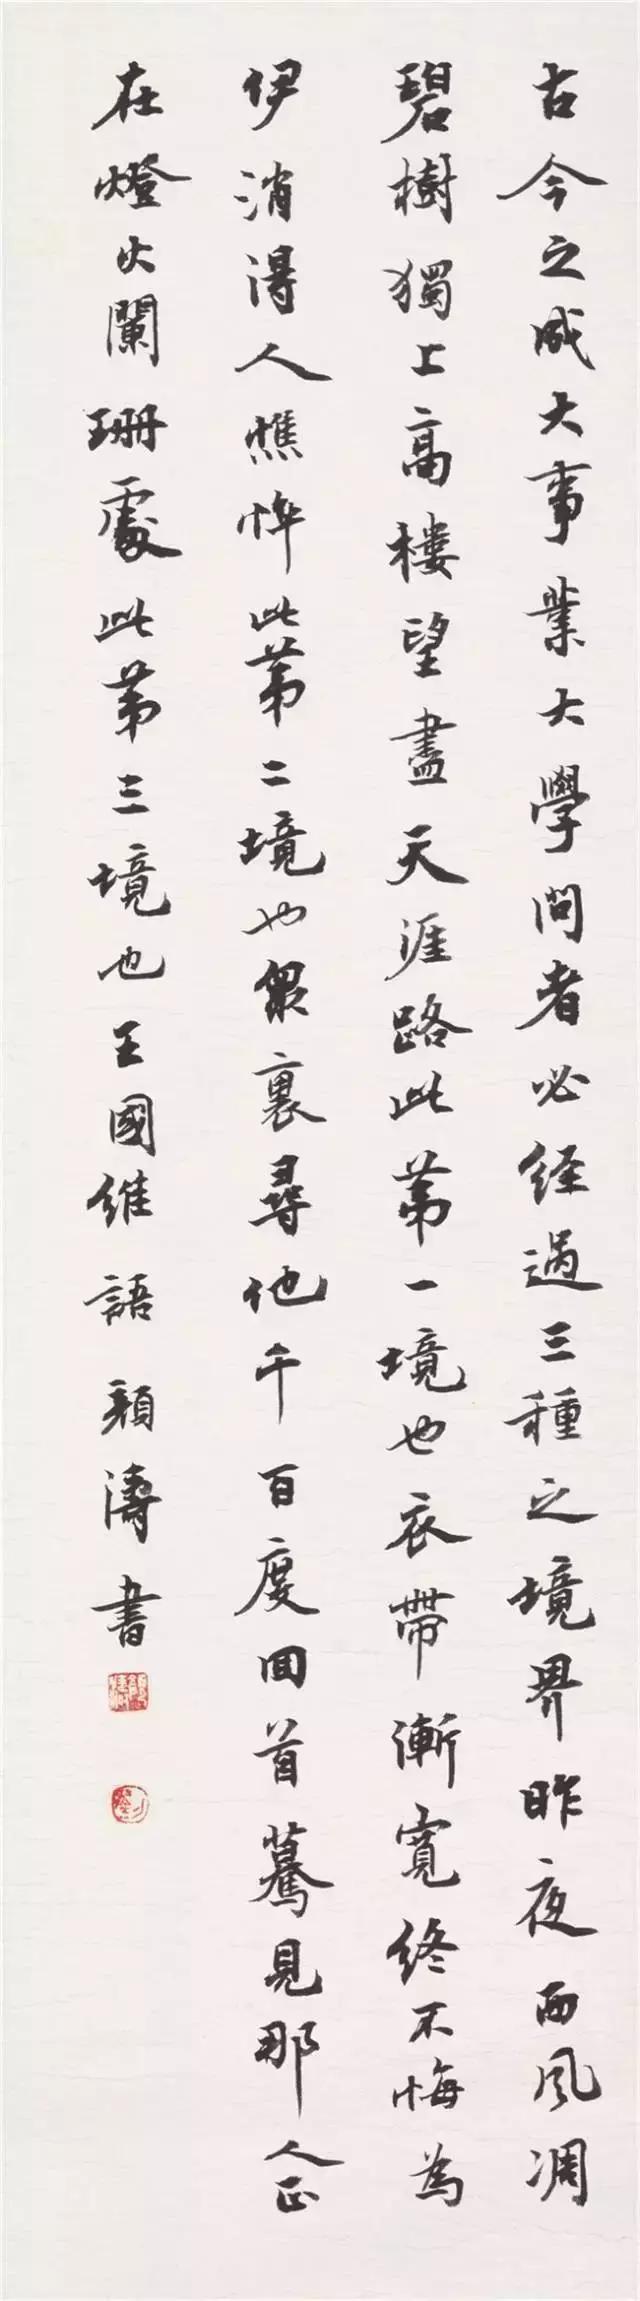 古今之成大事業大學問者必經過三種之境界昨夜西風凋
碧樹獨上高樓望盡天涯路此第一境也衣帶漸寬終不悔為
伊消得人憔悴此第二境也眾裏尋他千百度回首驀見那人正
在燈火闌珊處此第三境也王國維語顏濤書